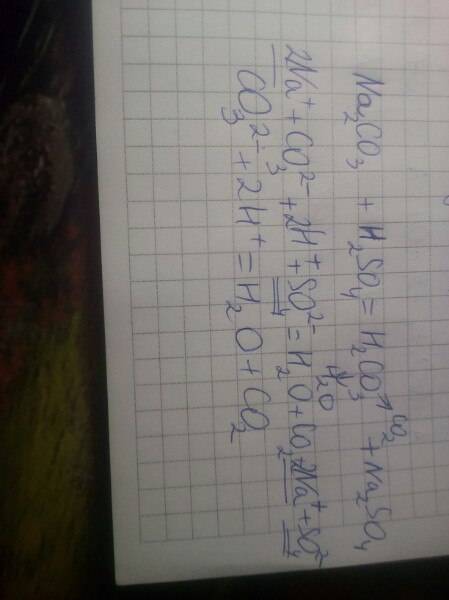 Na₂CO₃ + H₂SO₄ = H₂CO₃ + Na₂SO₄
↗ CO₂
↘ H₂O
2Na⁺ + CO₃²⁻ + 2H⁺ + SO₄²⁻ = H₂O + CO₂ + 2Na⁺ + SO₄²⁻
CO₃²⁻ + 2H⁺ = H₂O + CO₂